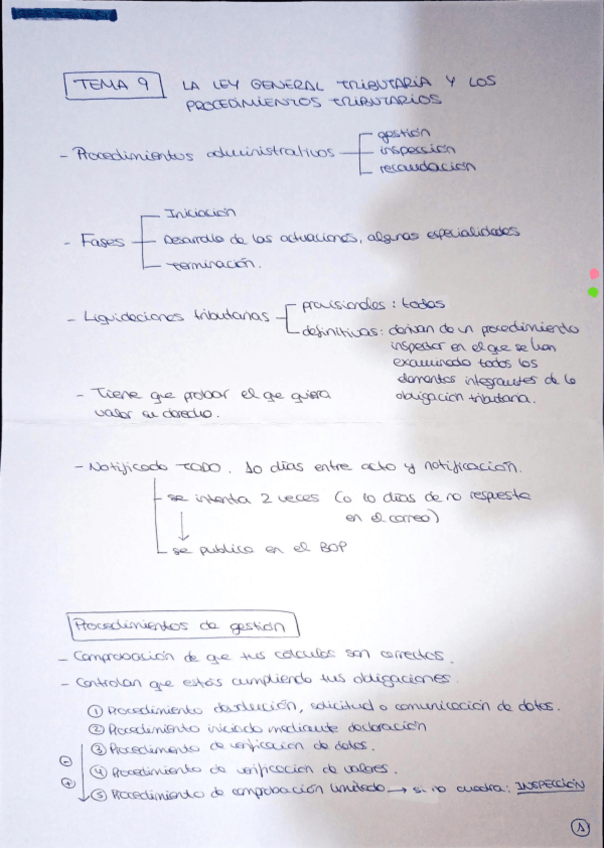 TEMA 9 LA LEY GENERAL TRIBUTARIA Y LOS
PROCEDIMIENTOS TRIBUTARIOS
- Procedimientos administrativos
gestión
inspección
recaudación
- Fases
Iniciación
Desarrollo de las actuaciones, algunas especialidades
terminación.
- Liquidaciones tributarias
provisionales: todas
definitivas: derivan de un procedimiento
inspector en el que se han
examinado todos los
elementos integrantes de la
obligación tributaria.
- Tiene que probar el que quiera
valer su derecho.
- Notificado TODO. 10 días entre acto y notificación.
se intenta 2 veces (o 10 días de no respuesta
en el correo)
↓
se publica en el BOP
Procedimientos de gestión
- Comprobación de que tus cálculos son correctos.
- Controlan que estés cumpliendo tus obligaciones.
① Procedimiento devolución, solicitud o comunicación de datos.
② Procedimiento iniciado mediante declaración
③ Procedimiento de verificación de datos.
⊖
④ Procedimiento de verificación de valores.
⊕
⑤ Procedimiento de comprobación limitado → si no cuadra: INSPECCIÓN
①